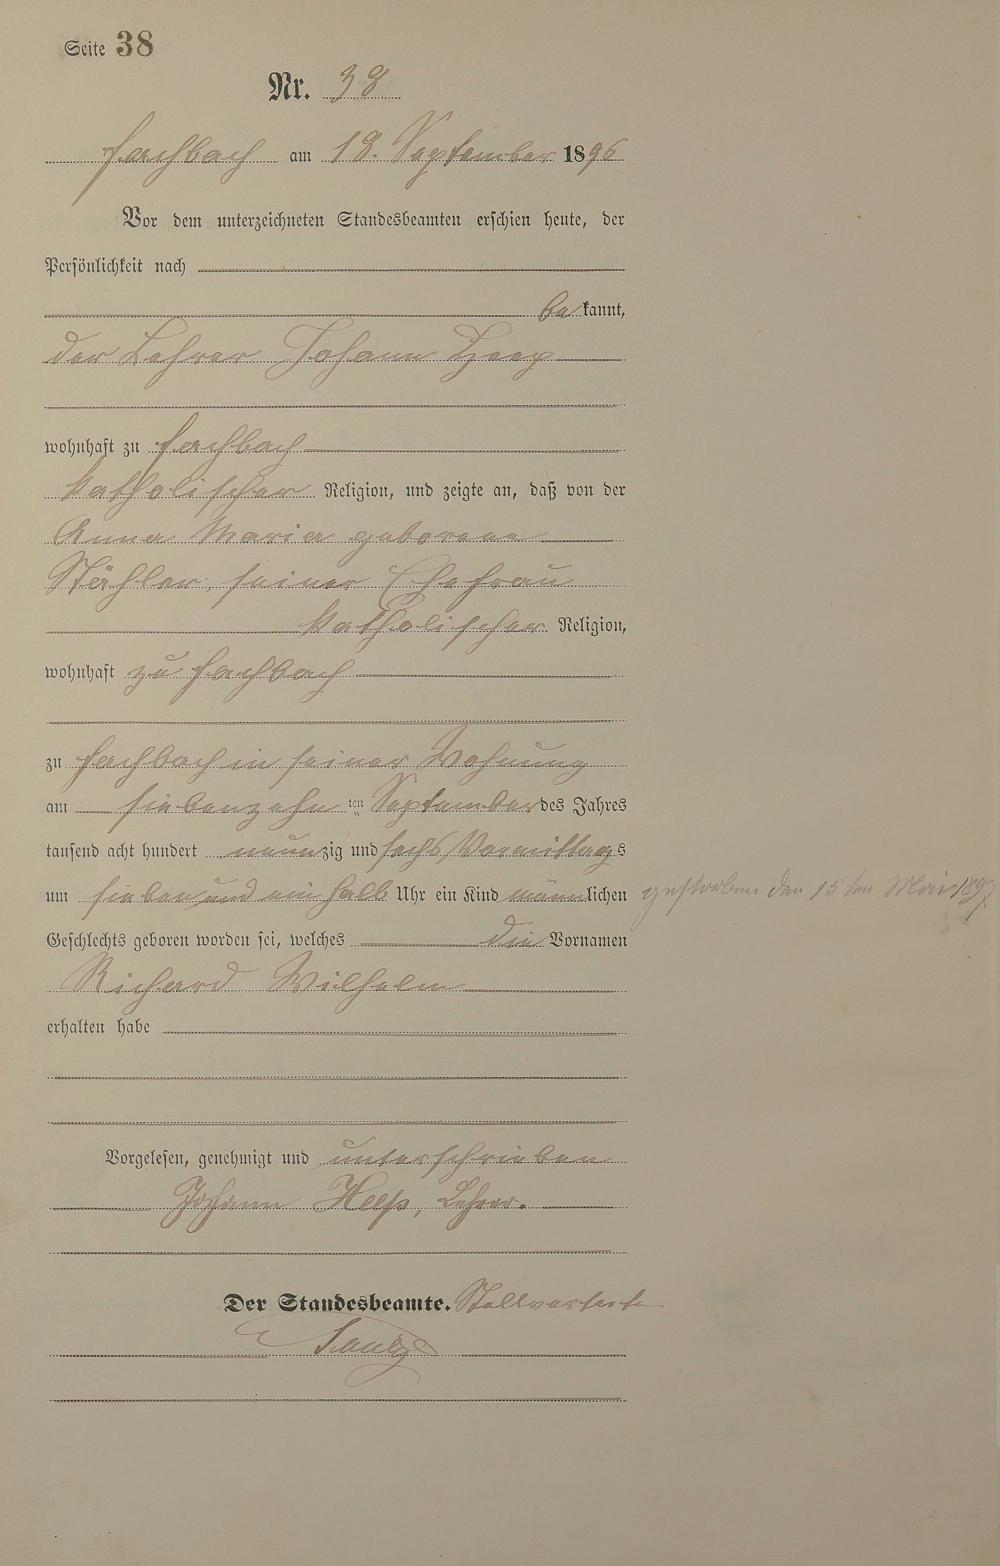 Seite 38
Nr. 38
Fachbach am 18. September 1896
Vor dem unterzeichneten Standesbeamten erschien heute, der
Persönlichkeit nach
be kannt,
der Lehrer Johann Heep
wohnhaft zu Fachbach
katholischer Religion, und zeigte an, daß von der
Anna Maria geborene
Stähler, seiner Ehefrau
katholischer Religion,
wohnhaft zu Fachbach
zu Fachbach in seiner Wohnung
am siebenzehn ten September des Jahres
tausend acht hundert neunzig und sechs Vormittags
um sieben und ein halb Uhr ein Kind männlichen
gestorben den 15ten Mai 1897
Geschlechts geboren worden sei, welches die Vornamen
Richard Wilhelm
erhalten habe
Vorgelesen, genehmigt und unterschrieben
Johann Heep, Lehrer.
Der Standesbeamte.